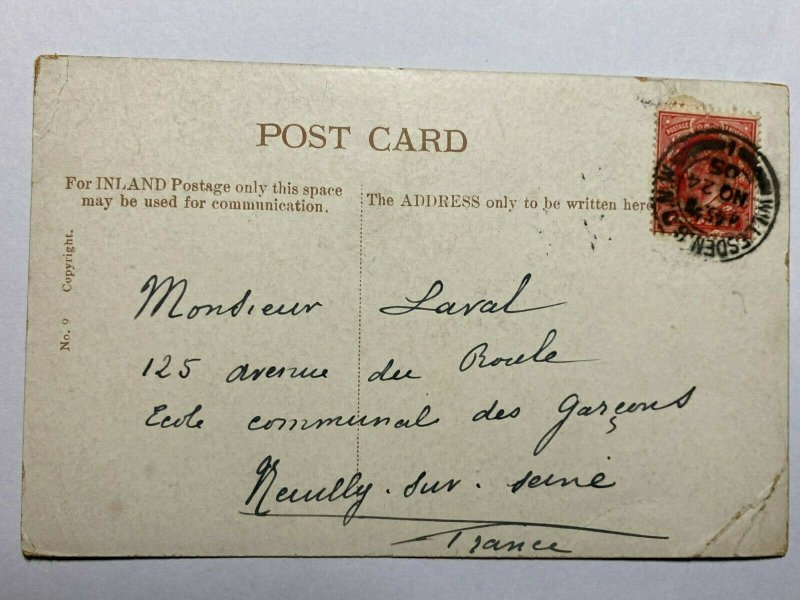 POST CARD
For INLAND Postage only this space
may be used for communication.
The ADDRESS only to be written here
No. 9 Copyright.
POSTAGE
WILLESDEN
N.W.
NO 24
05
Monsieur Laval
125 avenue du Roule
Ecole communal des Garçons
Neuilly-sur-seine
France